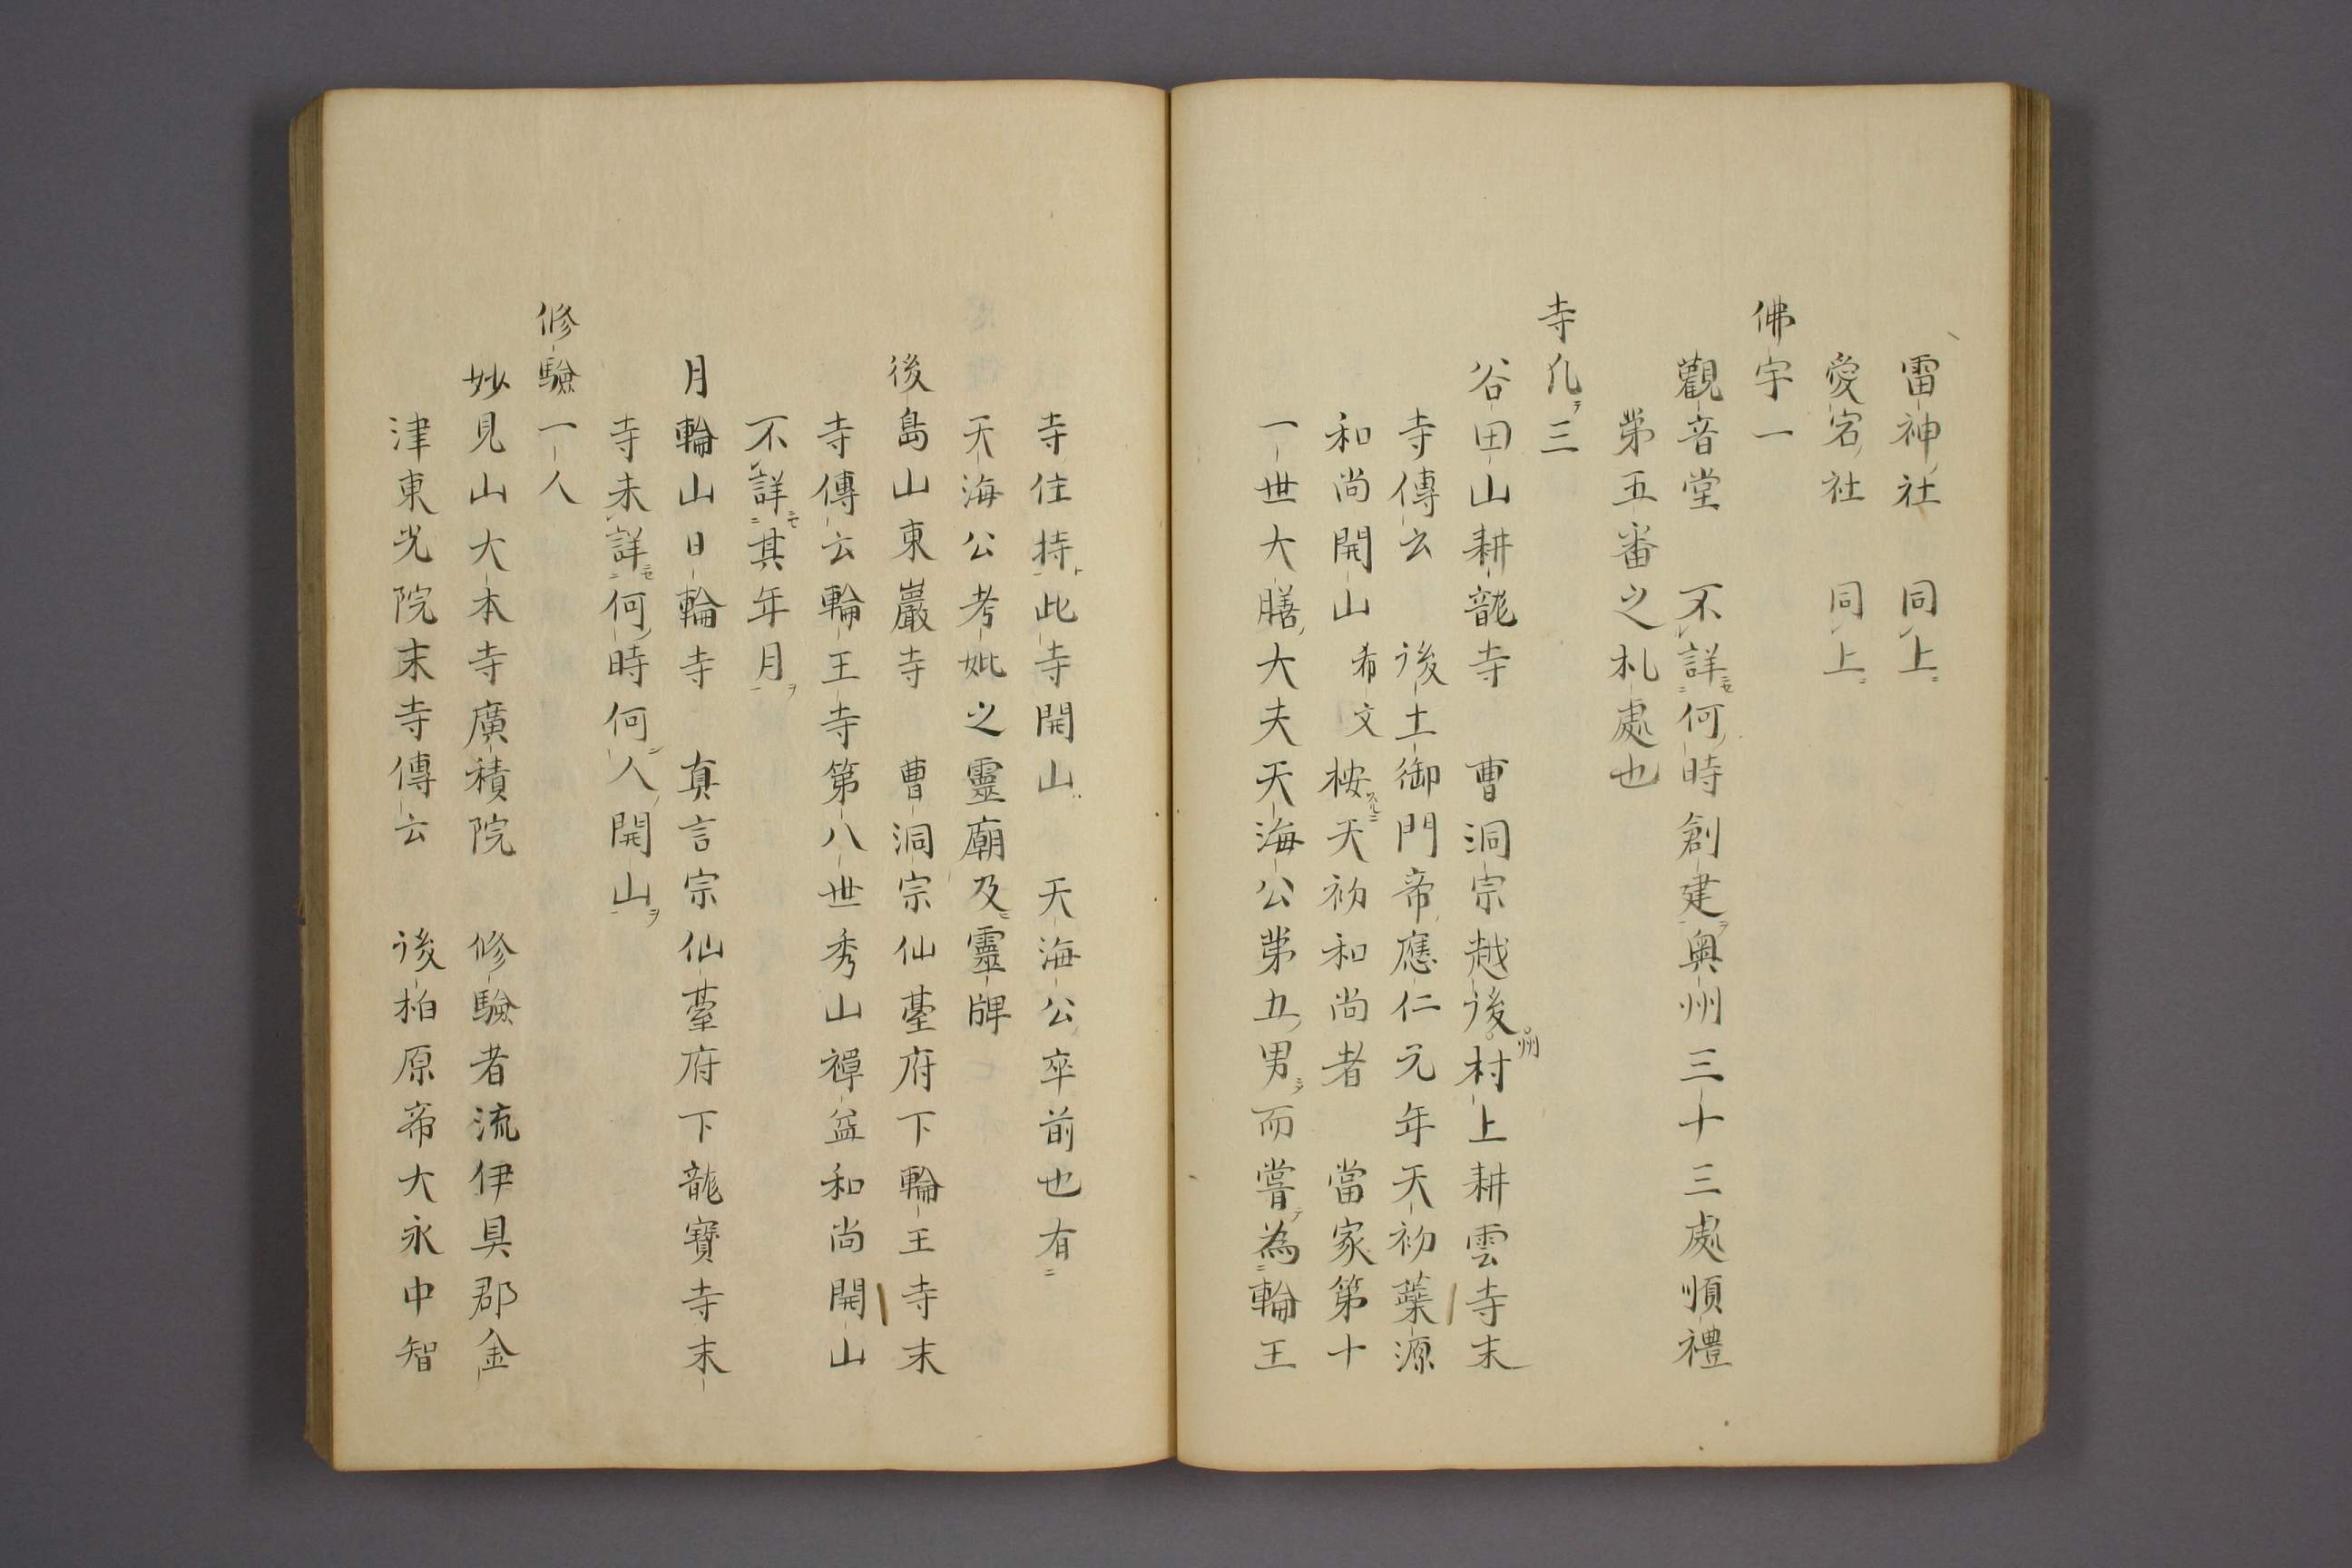 雷神社　同上
愛宕社　同上
佛宇一
觀音堂　不詳何時創建奥州三十三處順禮
第五番之札處也
寺凡三
谷田山耕龍寺　曹洞宗越後州村上耕雲寺末
寺傳云　後土御門帝應仁元年天初葉源
和尚開山　希文桉天初和尚者　當家第十
一世大膳大夫天海公第五男而嘗為輪王
寺住持此寺開山　天海公卒前也有
天海公考妣之靈廟及靈牌
後島山東巖寺　曹洞宗仙臺府下輪王寺末
寺傳云輪王寺第八世秀山禪益和尚開山
不詳其年月
月輪山日輪寺　真言宗仙臺府下龍寶寺末
寺未詳何時何人開山
修驗一人
妙見山大本寺廣積院　修驗者流伊具郡金
津東光院末寺傳云　後柏原帝大永中智